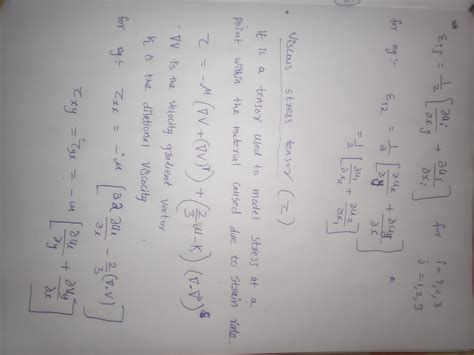 ε_ij = 1/2 [∂u_i/∂x_j + ∂u_j/∂x_i] for i = 1, 2, 3
j = 1, 2, 3
for eg:- ε_12 = 1/2 [∂u_x/∂y + ∂u_y/∂x]
= 1/2 [∂u_1/∂x_2 + ∂u_2/∂x_1]
• Viscous stress tensor (τ)
It is a tensor used to model stress at a
point within the material caused due to strain rate.
τ = -μ (∇V + (∇V)^T) + (2/3 μ - K) (∇·V) δ
∇V is the velocity gradient vector
K is the dilational viscosity
for eg:- τ_xx = -μ [2 ∂u_1/∂x - 2/3 (∇·V)]
τ_xy = τ_yx = -μ [∂u_x/∂y + ∂u_y/∂x]